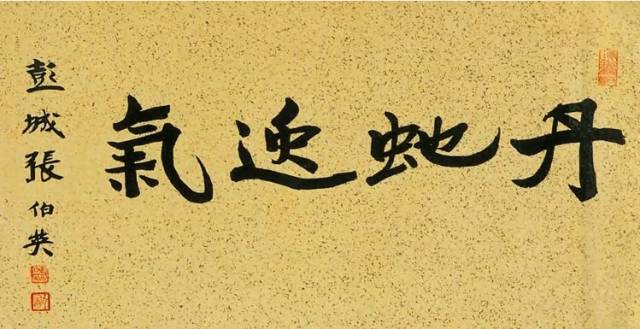 丹虵氣
彭城張伯英